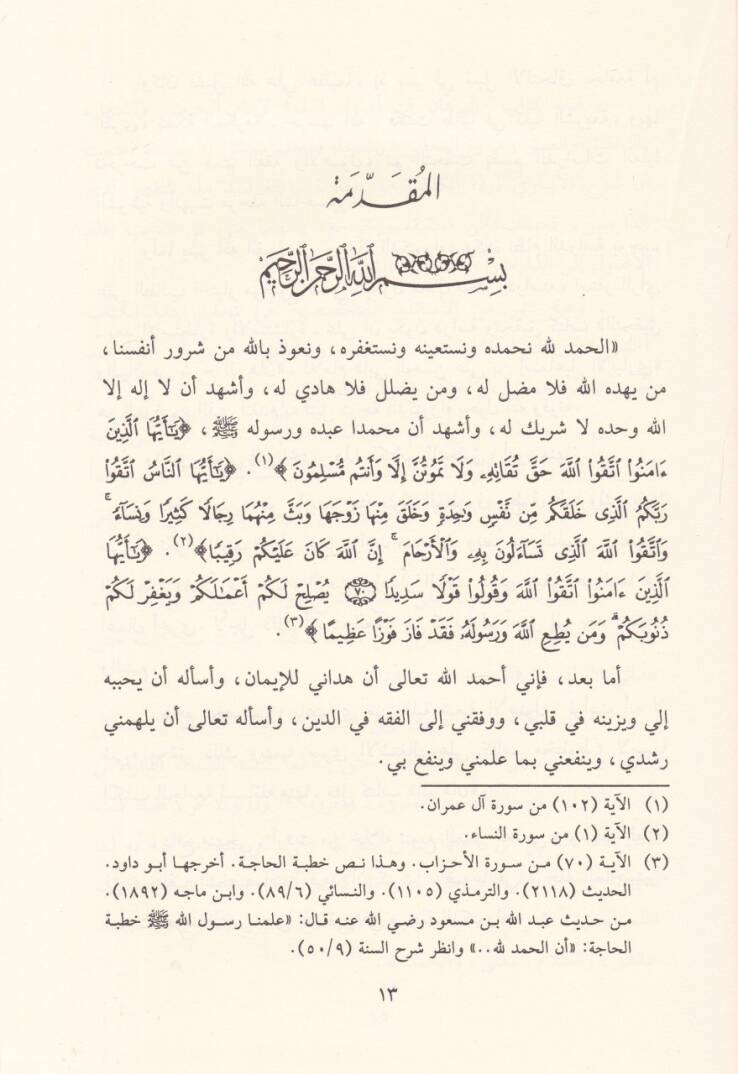 المُقَدِّمَة
بِسْمِ ٱللَّهِ ٱلرَّحْمَٰنِ ٱلرَّحِيمِ
«الحمد لله نحمده ونستعينه ونستغفره، ونعوذ بالله من شرور أنفسنا،
من يهده الله فلا مضل له، ومن يضلل فلا هادي له، وأشهد أن لا إله إلا
الله وحده لا شريك له، وأشهد أن محمدا عبده ورسوله ﷺ، ﴿يَٰٓأَيُّهَا ٱلَّذِينَ
ءَامَنُوا۟ ٱتَّقُوا۟ ٱللَّهَ حَقَّ تُقَاتِهِۦ وَلَا تَمُوتُنَّ إِلَّا وَأَنتُم مُّسْلِمُونَ﴾(١). ﴿يَٰٓأَيُّهَا ٱلنَّاسُ ٱتَّقُوا۟
رَبَّكُمُ ٱلَّذِى خَلَقَكُم مِّن نَّفْسٍ وَٰحِدَةٍ وَخَلَقَ مِنْهَا زَوْجَهَا وَبَثَّ مِنْهُمَا رِجَالًا كَثِيرًا وَنِسَآءً ۚ
وَٱتَّقُوا۟ ٱللَّهَ ٱلَّذِى تَسَآءَلُونَ بِهِۦ وَٱلْأَرْحَامَ ۚ إِنَّ ٱللَّهَ كَانَ عَلَيْكُمْ رَقِيبًا﴾(٢). ﴿يَٰٓأَيُّهَا
ٱلَّذِينَ ءَامَنُوا۟ ٱتَّقُوا۟ ٱللَّهَ وَقُولُوا۟ قَوْلًا سَدِيدًا ۝٧٠ يُصْلِحْ لَكُمْ أَعْمَٰلَكُمْ وَيَغْفِرْ لَكُمْ
ذُنُوبَكُمْ ۗ وَمَن يُطِعِ ٱللَّهَ وَرَسُولَهُۥ فَقَدْ فَازَ فَوْزًا عَظِيمًا﴾(٣).
أما بعد، فإني أحمد الله تعالى أن هداني للإيمان، وأسأله أن يحببه
إلي ويزينه في قلبي، ووفقني إلى الفقه في الدين، وأسأله تعالى أن يلهمني
رشدي، وينفعني بما علمني وينفع بي.
(١) الآية (١٠٢) من سورة آل عمران.
(٢) الآية (١) من سورة النساء.
(٣) الآية (٧٠) من سورة الأحزاب. وهذا نص خطبة الحاجة. أخرجها أبو داود.
الحديث (٢١١٨). والترمذي (١١٠٥). والنسائي (٨٩/٦). وابن ماجه (١٨٩٢).
من حديث عبد الله بن مسعود رضي الله عنه قال: «علمنا رسول الله ﷺ خطبة
الحاجة: «أن الحمد لله..» وانظر شرح السنة (٥٠/٩).
١٣